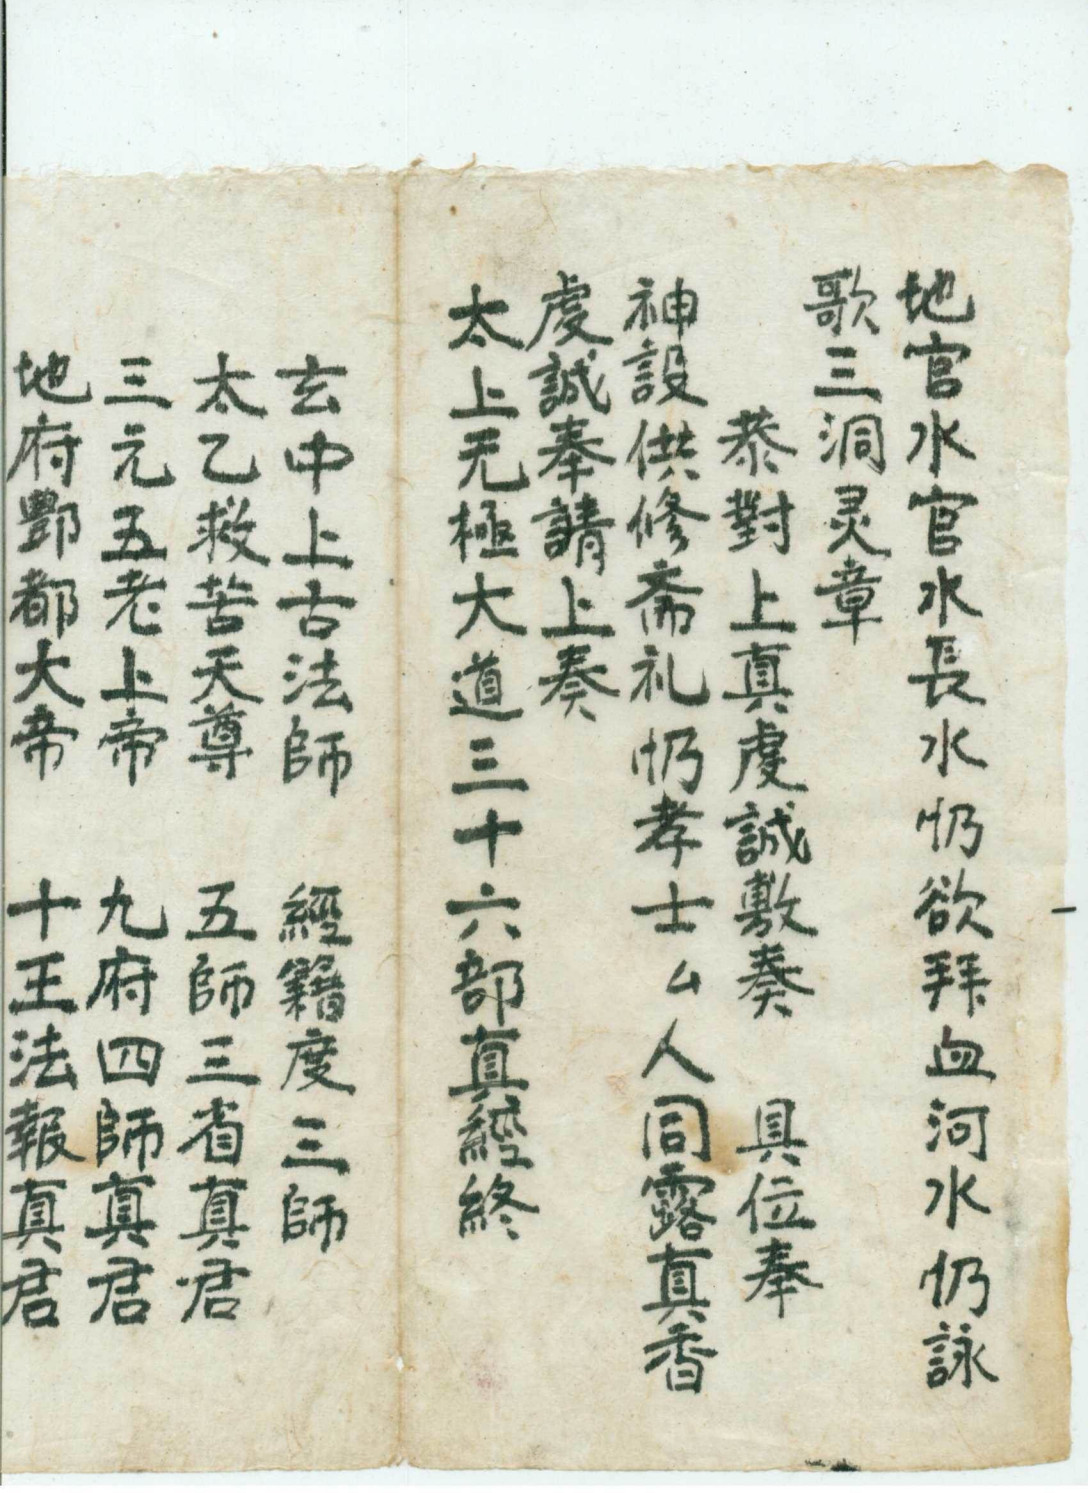 地官水官水長水忉欲拜血河水忉詠
歌三洞灵章
恭對上真虔誠敷奏 具位奉
神設供修斋礼忉孝士厶人同露真香
虔誠奉請上奏
太上无極大道三十六部真經終
玄中上古法師 經籍度三師
太乙救苦天尊 五師三省真君
三元五老上帝 九府四師真君
地府酆都大帝 十王法報真君